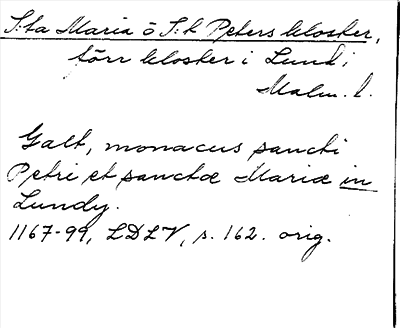 S:ta Maria o S:t Peters kloster,
förr kloster i Lund;
Malm. l.
Galt, monacus sancti
Petri et sanctæ Mariæ in
Lundy.
1167-99, LDLV, s. 162. orig.